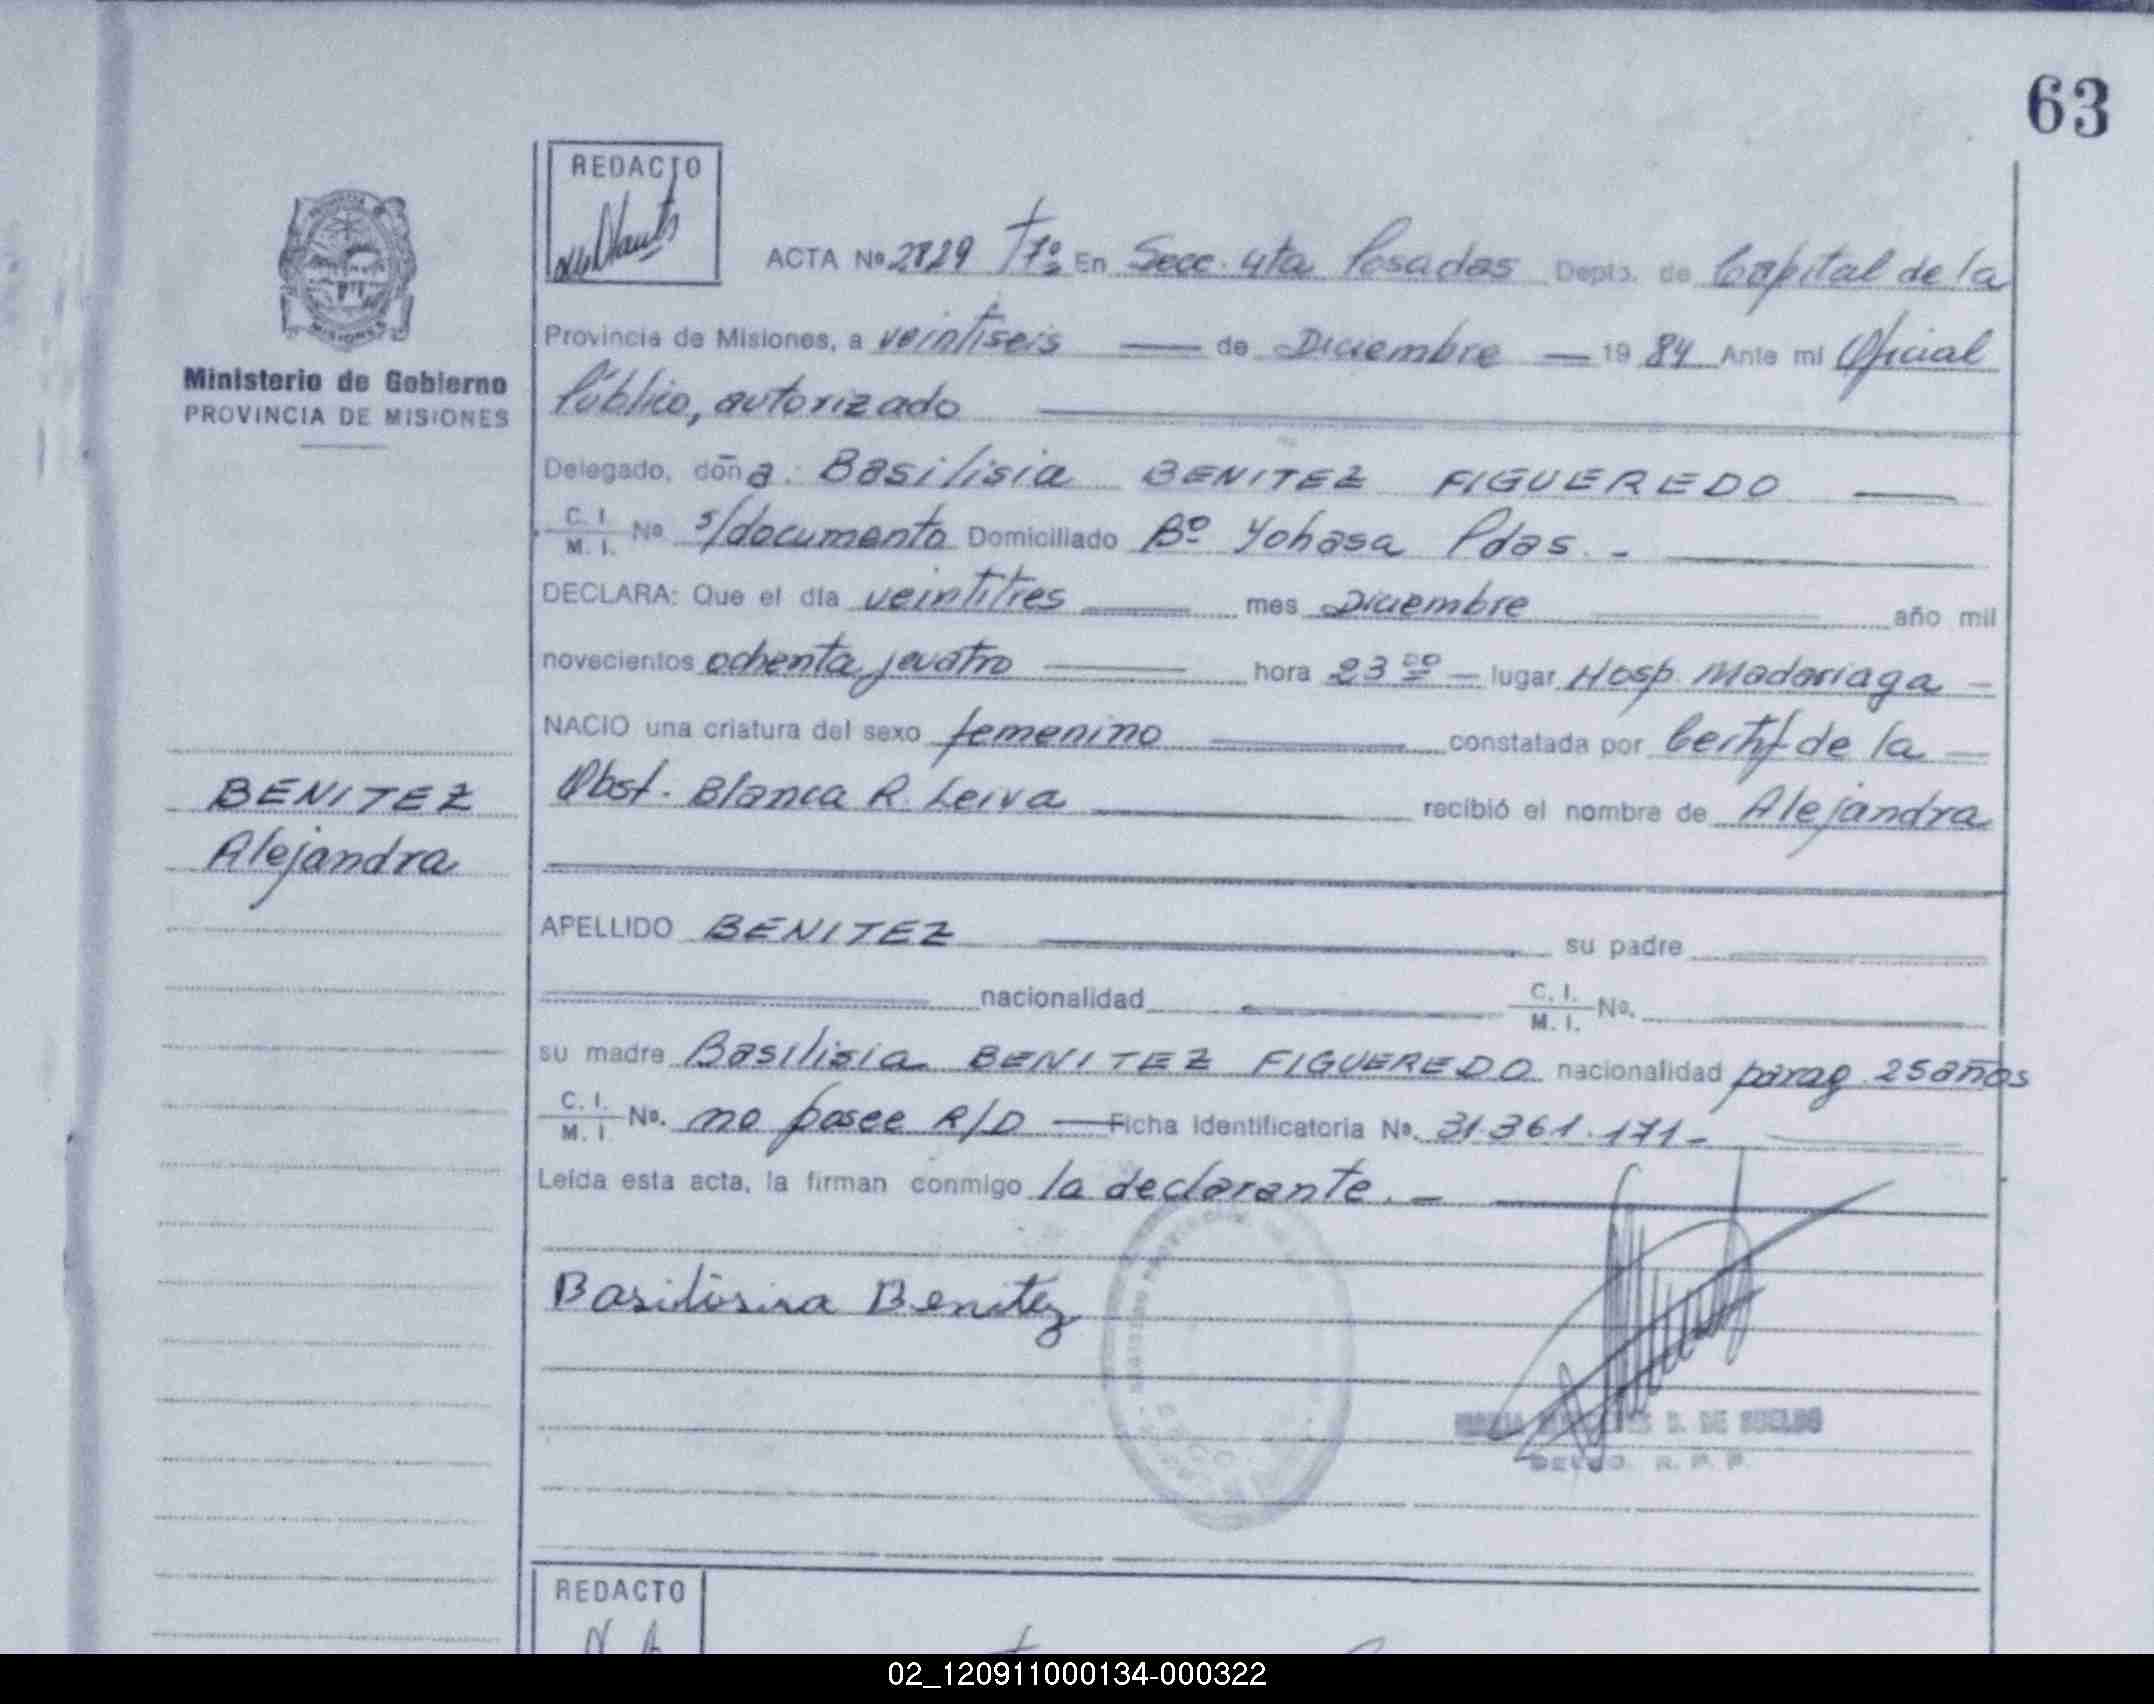 63
REDACTO
ACTA Nº 2829 Tº 7º En Secc. 4ta Posadas Depto. de Capital de la
Provincia de Misiones, a veintiseis de Diciembre 1984 Ante mi Oficial
Público, autorizado
Ministerio de Gobierno
PROVINCIA DE MISIONES
Delegado, doña: Basilisia BENITEZ FIGUEREDO
C. I. / M. I. Nº s/documento Domiciliado Bº Yohasa Pdas. -
DECLARA: Que el día veintitres mes Diciembre año mil
novecientos ochenta y cuatro hora 23 00 lugar Hosp. Madariaga
NACIO una criatura del sexo femenino constatada por Certif de la
BENITEZ
Alejandra
Obst. Blanca R. Leiva recibió el nombre de Alejandra
APELLIDO BENITEZ su padre
nacionalidad C. I. / M. I. Nº.
su madre Basilisia BENITEZ FIGUEREDO nacionalidad parag. 25 años
C. I. / M. I. Nº. no posee R/D Ficha Identificatoria Nº. 31.361.171-
Leída esta acta, la firman conmigo la declarante. -
Basilisia Benitez
D. DE SUELDO
R. P. P.
REDACTO
02_120911000134-000322